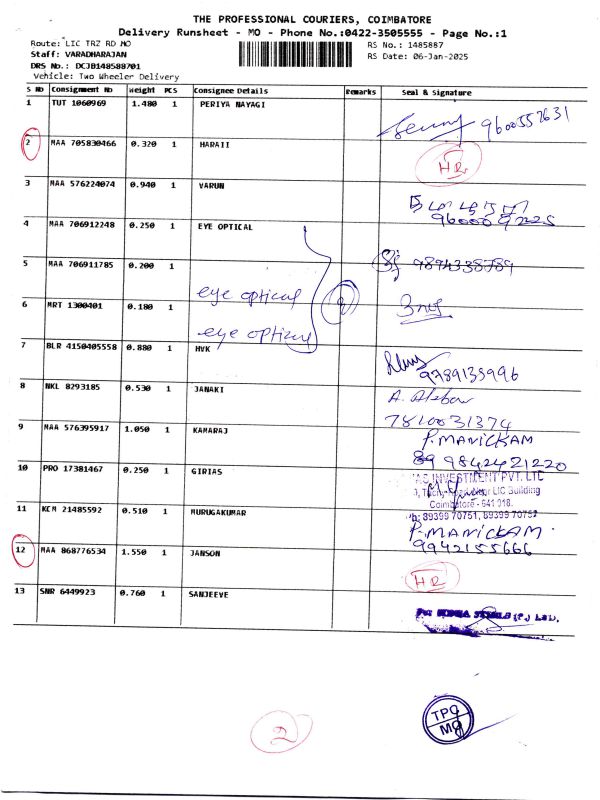 THE PROFESSIONAL COURIERS, COIMBATORE
Delivery Runsheet - MO - Phone No.:0422-3505555 - Page No.:1
Route: LIC TRZ RD MO
RS No.: 1485887
Staff: VARADHARAJAN
RS Date: 06-Jan-2025
DRS No.: DCJB148588701
Vehicle: Two Wheeler Delivery
S No Consignment No Weight PCS Consignee Details Remarks Seal & Signature
1 TUT 1060969 1.480 1 PERIYA NAYAGI
9600557631
2 MAA 705830466 0.320 1 HARAII
HR
3 MAA 576224074 0.940 1 VARUN
4 MAA 706912248 0.250 1 EYE OPTICAL
5 MAA 706911785 0.200 1
9894338789
eye optical
6 MRT 1300401 0.180 1
eye optical
7 BLR 4150405558 0.880 1 HVK
9789135996
8 NKL 8293185 0.530 1 JANAKI
7810031374
9 MAA 576395917 1.050 1 KAMARAJ
P. MANICKAM
89 9842421220
10 PRO 17381467 0.250 1 GIRIAS
INVESTMENT PVT. LTD
LIC Building
Coimbatore - 641 018.
Ph: 89399 70751, 89399 70752
11 KCM 21485592 0.510 1 MURUGAKUMAR
P. MANICKAM.
9942155666
12 MAA 868776534 1.550 1 JANSON
HR
13 SNR 6449923 0.760 1 SANJEEVE
For
2
TPC
MO